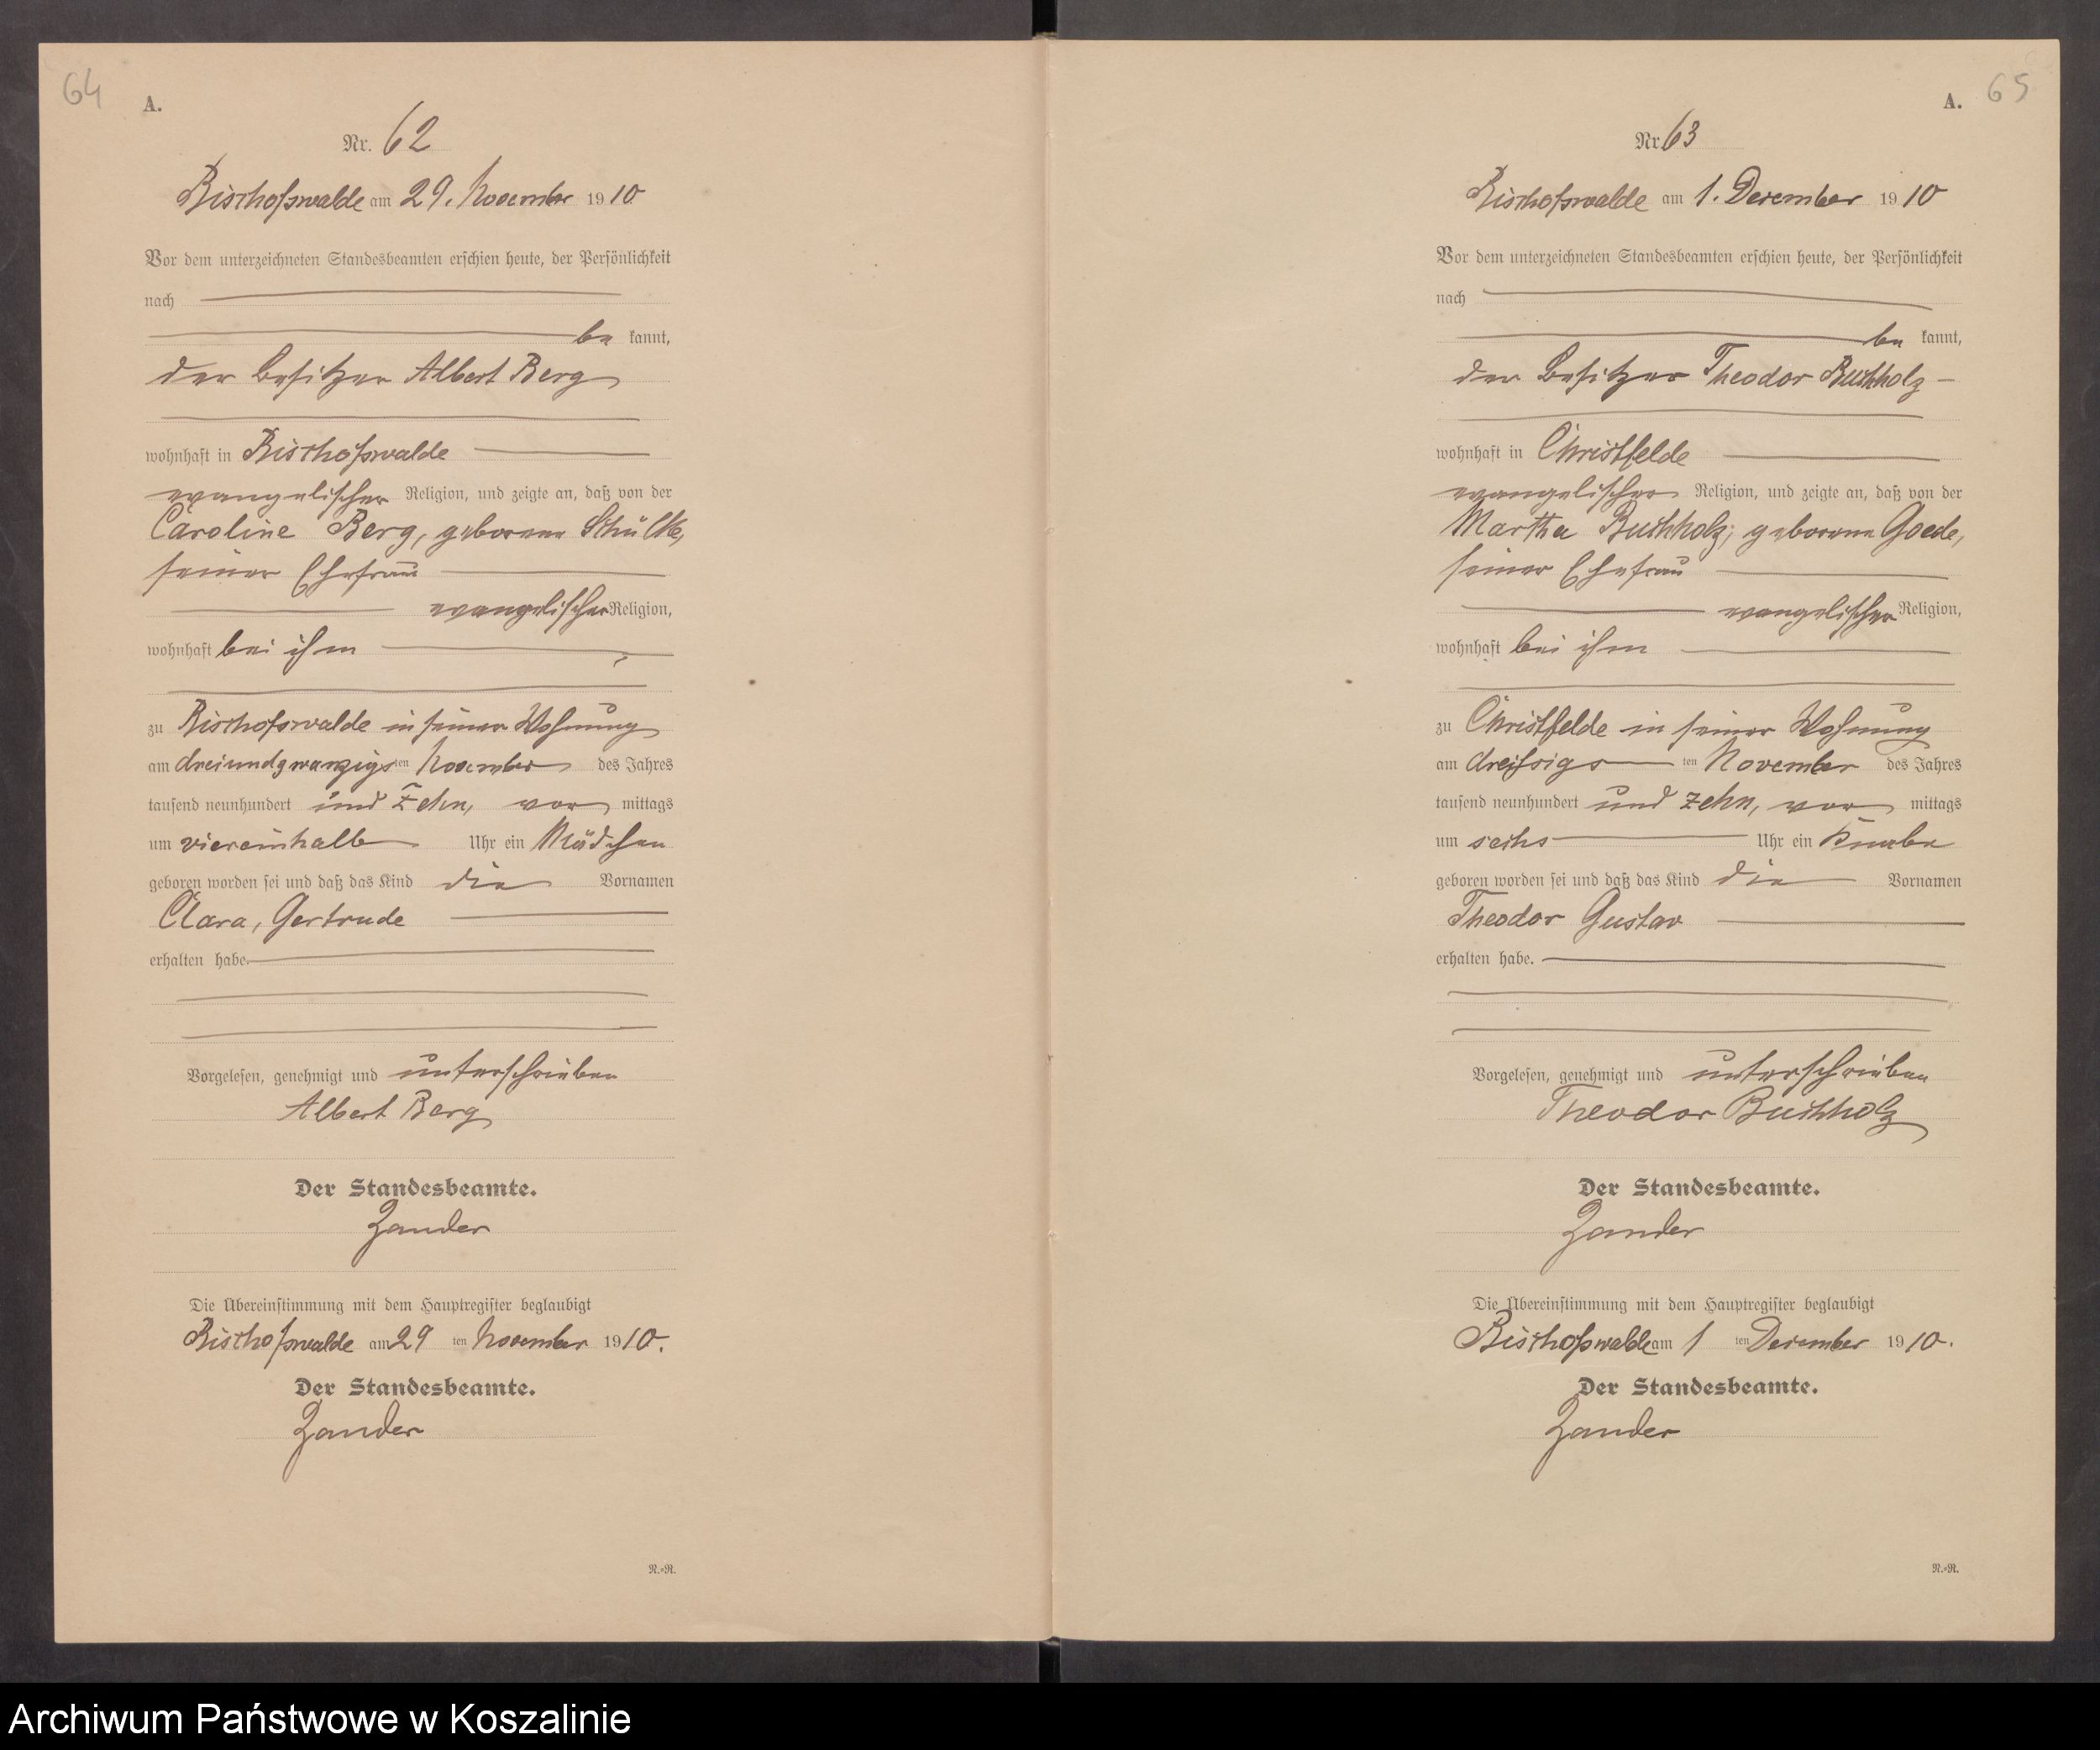 64
A.
Nr. 62
Bischofswalde am 29. November 1910
Vor dem unterzeichneten Standesbeamten erschien heute, der Persönlichkeit
nach
be kannt,
der Besitzer Albert Berg
wohnhaft in Bischofswalde
evangelischer Religion, und zeigte an, daß von der
Caroline Berg, geborene Schülke,
seiner Ehefrau
evangelischer Religion,
wohnhaft bei ihm
zu Bischofswalde in seiner Wohnung
am dreiundzwanzigsten November des Jahres
tausend neunhundert und zehn, vor mittags
um viereinhalb Uhr ein Mädchen
geboren worden sei und daß das Kind die Vornamen
Clara, Gertrude
erhalten habe.
Vorgelesen, genehmigt und unterschrieben
Albert Berg
Der Standesbeamte.
Zander
Die Übereinstimmung mit dem Hauptregister beglaubigt
Bischofswalde am 29 ten November 1910.
Der Standesbeamte.
Zander
N.=R.
65
A.
Nr 63
Bischofswalde am 1. Dezember 1910
Vor dem unterzeichneten Standesbeamten erschien heute, der Persönlichkeit
nach
be kannt,
der Besitzer Theodor Buchholz
wohnhaft in Christfelde
evangelischer Religion, und zeigte an, daß von der
Martha Buchholz, geborene Goede,
seiner Ehefrau
evangelischer Religion,
wohnhaft bei ihm
zu Christfelde in seiner Wohnung
am dreißigs ten November des Jahres
tausend neunhundert und zehn, vor mittags
um sechs Uhr ein Knabe
geboren worden sei und daß das Kind die Vornamen
Theodor Gustav
erhalten habe.
Vorgelesen, genehmigt und unterschrieben
Theodor Buchholz
Der Standesbeamte.
Zander
Die Übereinstimmung mit dem Hauptregister beglaubigt
Bischofswalde am 1 ten Dezember 1910.
Der Standesbeamte.
Zander
N.=R.
Archiwum Państwowe w Koszalinie